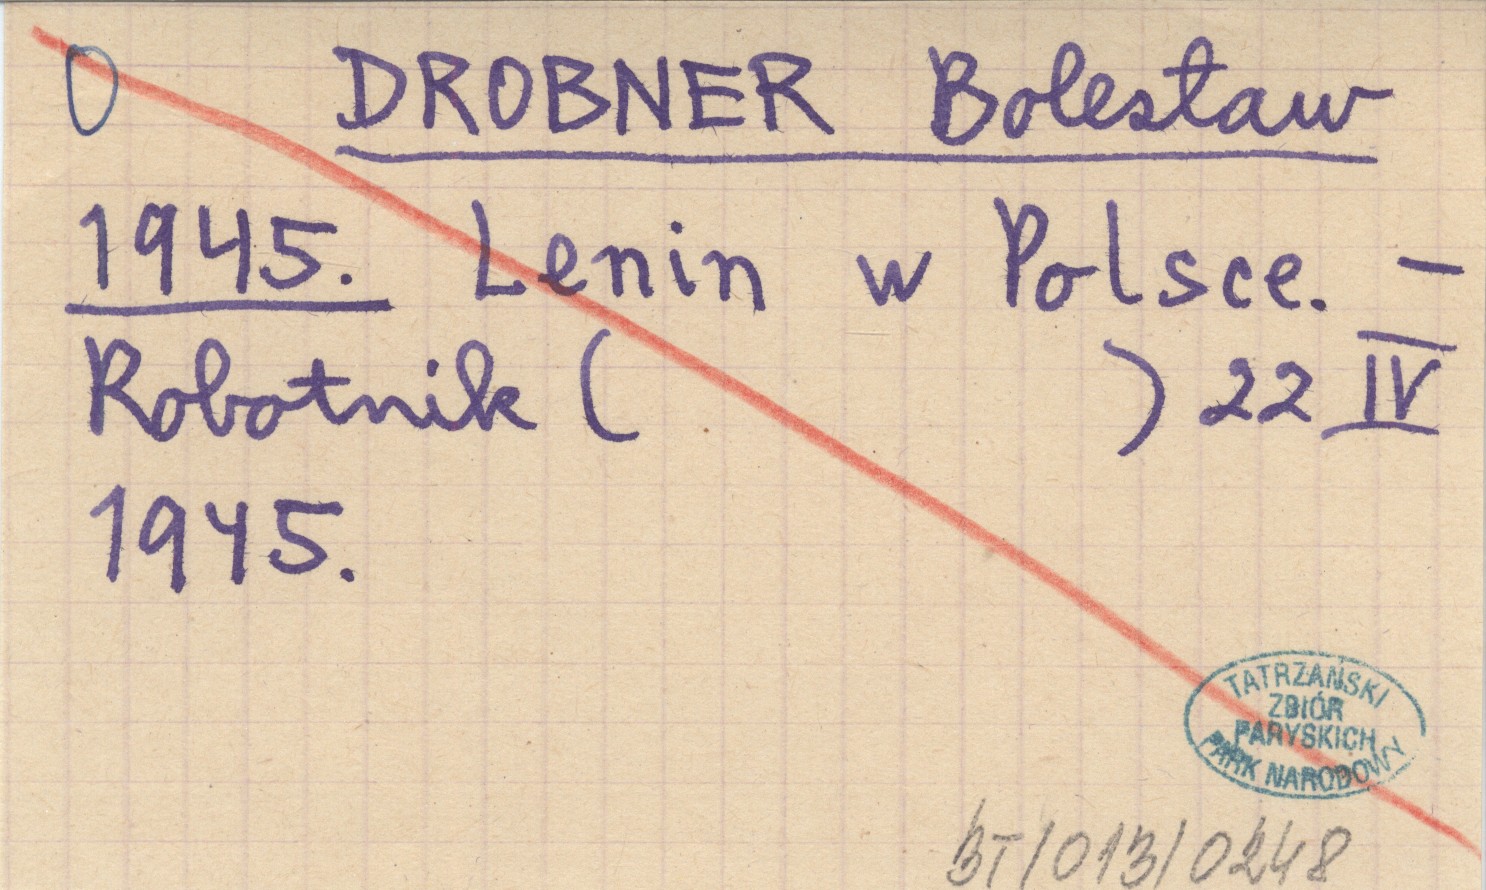 0 DROBNER Bolesław
1945. Lenin w Polsce. –
Robotnik ( ) 22 IV
1945.
TATRZAŃSKI
ZBIÓR
PARYSKICH
PARK NARODOWY
BT/013/0248